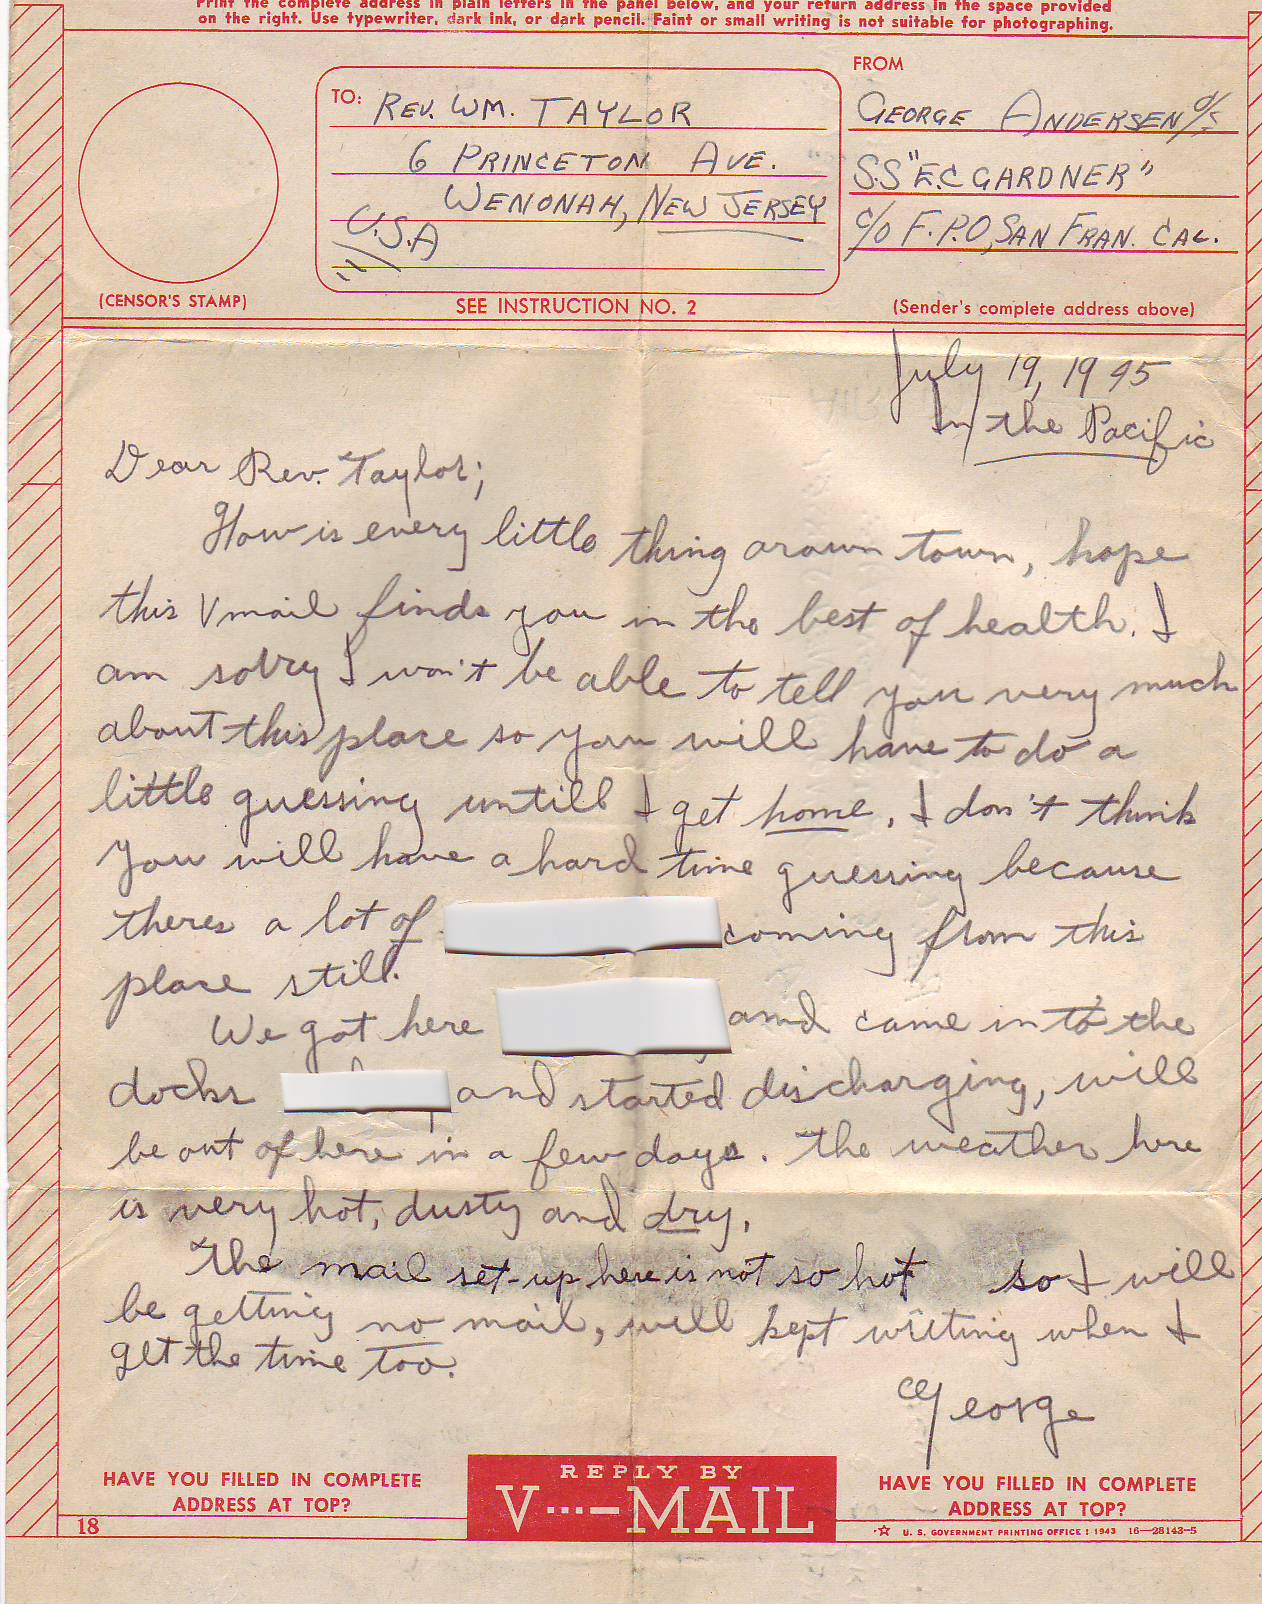 Print the complete address in plain letters in the panel below, and your return address in the space provided
on the right. Use typewriter, dark ink, or dark pencil. Faint or small writing is not suitable for photographing.
FROM
TO: REV. WM. TAYLOR
6 PRINCETON AVE.
WENONAH, NEW JERSEY
U.S.A
GEORGE ANDERSEN O/S
S.S "E.C GARDNER"
C/O F.P.O, SAN FRAN. CAL.
(CENSOR'S STAMP)
SEE INSTRUCTION NO. 2
(Sender's complete address above)
July 19, 1945
In the Pacific
Dear Rev. Taylor;
How is every little thing aroun town, hope
this Vmail finds you in the best of health. I
am sorry I won't be able to tell you very much
about this place so you will have to do a
little guessing untill I get home. I don't think
you will have a hard time guessing because
theres a lot of coming from this
place still.
We got here and came in to the
docks and started discharging, will
be out of here in a few days. The weather here
is very hot, dusty and dry.
The mail set-up here is not so hot so I will
be getting no mail, will kept writing when I
get the time too.
George
HAVE YOU FILLED IN COMPLETE
ADDRESS AT TOP?
REPLY BY
V···—MAIL
HAVE YOU FILLED IN COMPLETE
ADDRESS AT TOP?
18
☆ U. S. GOVERNMENT PRINTING OFFICE : 1943 16—28143-5